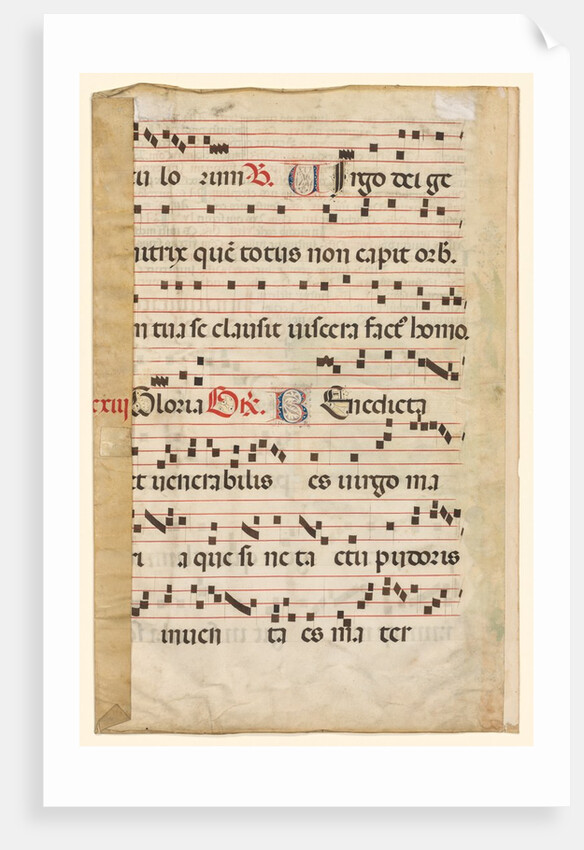 cu lo rum ℟. Uirgo dei ge
nitrix quē totus non capit orb.
in tua se clausit uiscera fact' homo.
cxiij Gloria Gr̄. Benedicta
et uenerabilis es uirgo ma
ri a que si ne ta ctu pudoris
inuen ta es ma ter